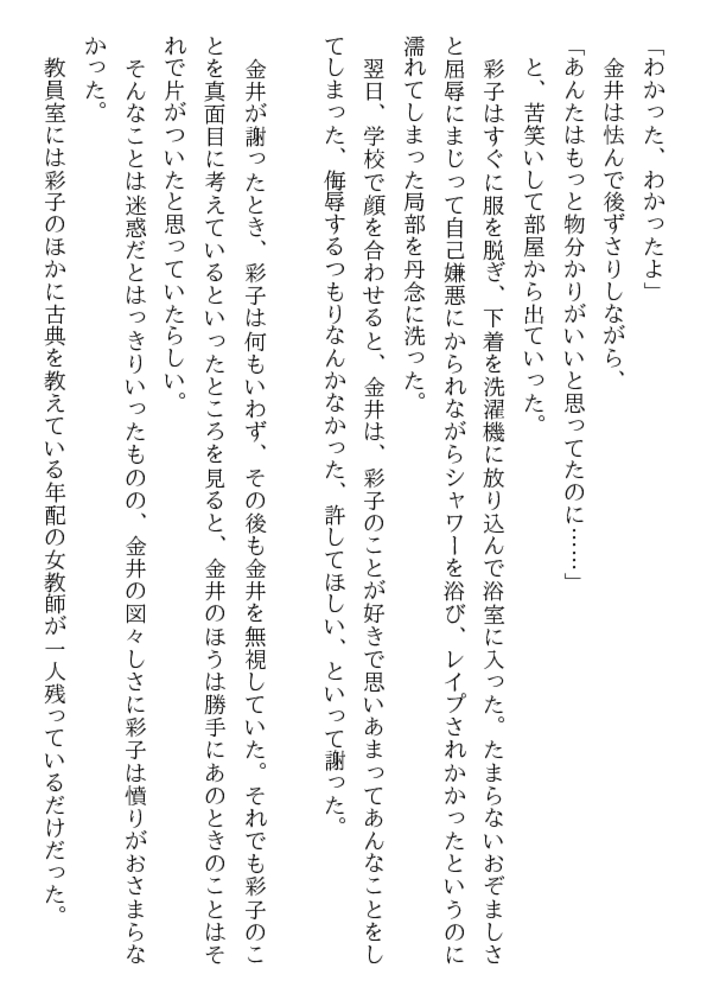 「わかった、わかったよ」
　金井は怯んで後ずさりしながら、
「あんたはもっと物分かりがいいと思ってたのに……」
　と、苦笑いして部屋から出ていった。
　彩子はすぐに服を脱ぎ、下着を洗濯機に放り込んで浴室に入った。たまらないおぞましさ
と屈辱にまじって自己嫌悪にかられながらシャワーを浴び、レイプされかかったというのに
濡れてしまった局部を丹念に洗った。
　翌日、学校で顔を合わせると、金井は、彩子のことが好きで思いあまってあんなことをし
てしまった、侮辱するつもりなんかなかった、許してほしい、といって謝った。
　金井が謝ったとき、彩子は何もいわず、その後も金井を無視していた。それでも彩子のこ
とを真面目に考えているといったところを見ると、金井のほうは勝手にあのときのことはそ
れで片がついたと思っていたらしい。
　そんなことは迷惑だとはっきりいったものの、金井の図々しさに彩子は憤りがおさまらな
かった。
　教員室には彩子のほかに古典を教えている年配の女教師が一人残っているだけだった。